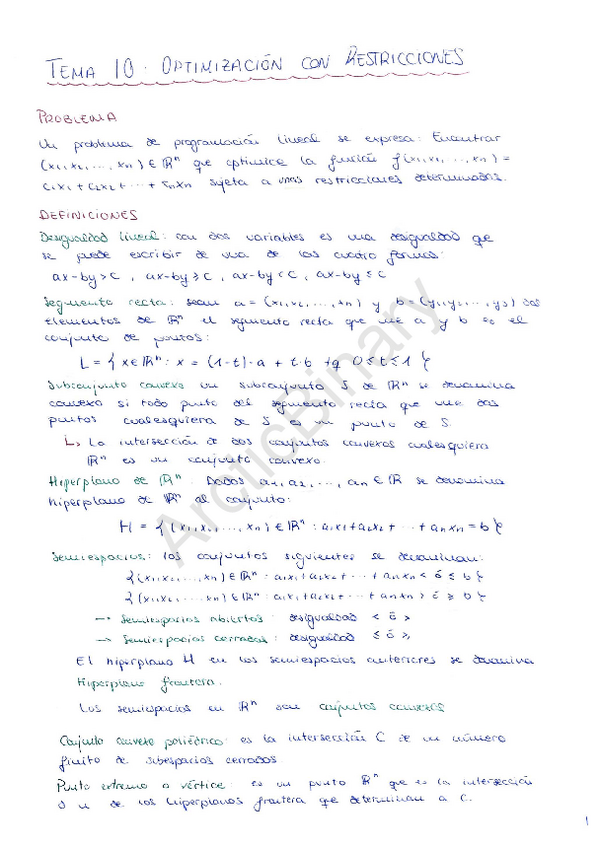 TEMA 10: OPTIMIZACIÓN CON RESTRICCIONES
PROBLEMA
Un problema de programación lineal se expresa: Encontrar
(x₁, x₂, ..., xn) ∈ ℝⁿ que optimice la función f(x₁, x₂, ..., xn) =
c₁x₁ + c₂x₂ + ... + cnxn sujeta a unas restricciones determinadas.
DEFINICIONES
Desigualdad lineal: con dos variables es una desigualdad que
se puede escribir de una de las cuatro formas:
ax-by > c , ax-by ≥ c , ax-by < c , ax-by ≤ c
Segmento recta: sean a = (x₁, x₂, ..., xn) y b = (y₁, y₂, ..., yn) dos
elementos de ℝⁿ el segmento recta que une a y b es el
conjunto de puntos:
L = { x ∈ ℝⁿ : x = (1-t)·a + t·b tq 0 ≤ t ≤ 1 }
Subconjunto convexo un subconjunto S de ℝⁿ se denomina
convexo si todo punto del segmento recta que une dos
puntos cualesquiera de S es un punto de S.
↳ La intersección de dos conjuntos convexos cualesquiera
ℝⁿ es un conjunto convexo.
Hiperplano de ℝⁿ. Dados a₁, a₂, ..., an ∈ ℝ se denomina
hiperplano de ℝⁿ al conjunto:
H = { (x₁, x₂, ..., xn) ∈ ℝⁿ : a₁x₁ + a₂x₂ + ... + anxn = b }
Semiespacios: los conjuntos siguientes se denominan:
{ (x₁, x₂, ..., xn) ∈ ℝⁿ : a₁x₁ + a₂x₂ + ... + anxn < ó ≤ b }
{ (x₁, x₂, ..., xn) ∈ ℝⁿ : a₁x₁ + a₂x₂ + ... + anxn > ó ≥ b }
→ Semiespacios abiertos: desigualdad < ó >
→ Semiespacios cerrados: desigualdad ≤ ó ≥
El hiperplano H en los semiespacios anteriores se denomina
Hiperplano frontera.
Los semiespacios en ℝⁿ son conjuntos convexos
Conjunto convexo poliédrico: es la intersección C de un número
finito de subespacios cerrados.
Punto extremo o vértice: es un punto ℝⁿ que es la intersección
n de los hiperplanos frontera que determinan a C.
ArcticBinary
1